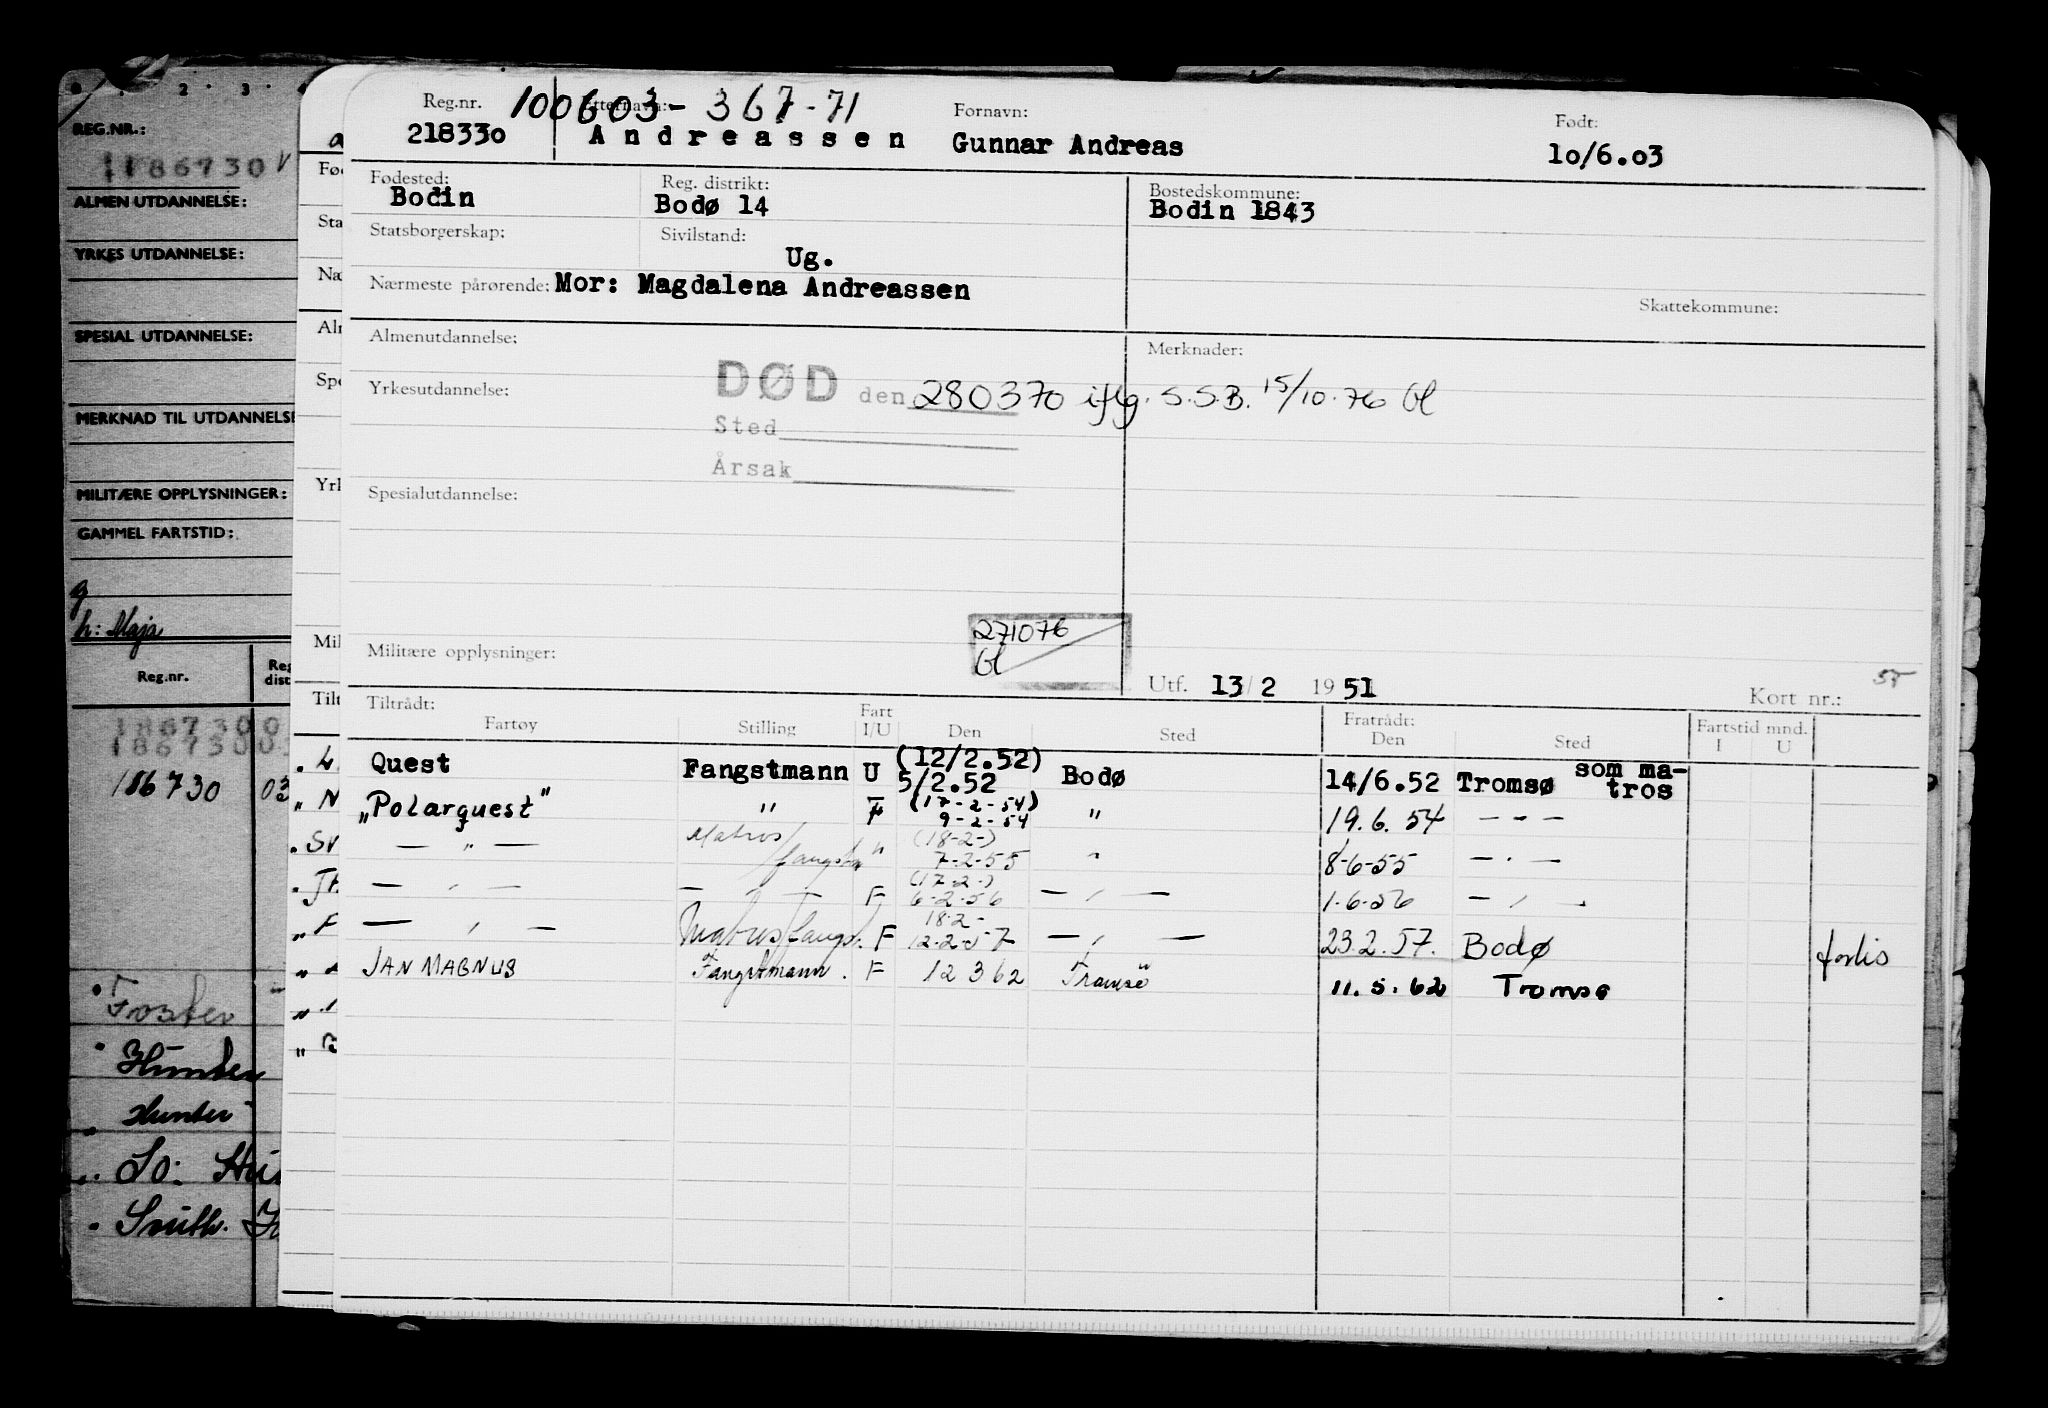 REG.NR.:
186730
ALMEN UTDANNELSE:
YRKES UTDANNELSE:
SPESIAL UTDANNELSE:
MERKNAD TIL UTDANNELSE
MILITÆRE OPPLYSNINGER:
GAMMEL FARTSTID:
h: Maja
Reg.nr. Reg dist
186730 0
186730 0
186730 03
Foster
Hunter
Hunter
So: Hu
South.
Reg.nr. 100603-367-71 Etternavn: Fornavn: Født:
218330 Andreassen Gunnar Andreas 10/6.03
Fødested: Reg. distrikt: Bostedskommune:
Bodin Bodø 14 Bodin 1843
Statsborgerskap: Sivilstand:
Ug.
Nærmeste pårørende: Mor: Magdalena Andreassen Skattekommune:
Almenutdannelse: Merknader:
Yrkesutdannelse: DØD den 280370 iflg. S.S.B. 15/10.76 Gl
Sted
Årsak
Spesialutdannelse:
271076
Gl
Militære opplysninger:
Utf. 13/2 1951 Kort nr.:
Tiltrådt: Fart Fratrådt: Fartstid mnd.
Fartøy Stilling I/U Den Sted Den Sted I U
Quest Fangstmann U (12/2.52) 5/2.52 Bodø 14/6.52 Tromsø som matros
„Polarquest" " F (17-2-54) 9-2-54 " 19.6.54 — " —
— " — Matros/fangstm " (18-2-) 7-2-55 " 8-6-55 — " —
— " — — " — F (17-2-) 6-2-56 — " — 1.6.56 — " —
— " — Matros/fangs. F 18.2- 12.2.57 — " — 23.2.57. Bodø forlis
JAN MAGNUS Fangstmann. F 12 3 62 Tromsö 11.5.62 Tromsø